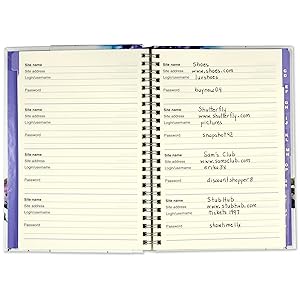 Site name
Site address
Login/username
Password
Site name
Site address
Login/username
Password
Site name
Site address
Login/username
Password
Site name
Site address
Login/username
Password
Site name Shoes
Site address www.shoes.com
Login/username luvshoes
Password buynow04
Site name Shutterfly
Site address www.shutterfly.com
Login/username pictures
Password snapshot42
Site name Sam's Club
Site address www.samsclub.com
Login/username
Password discountshopper8
Site name StubHub
Site address www.stubhub.com
Login/username tickets1997
Password